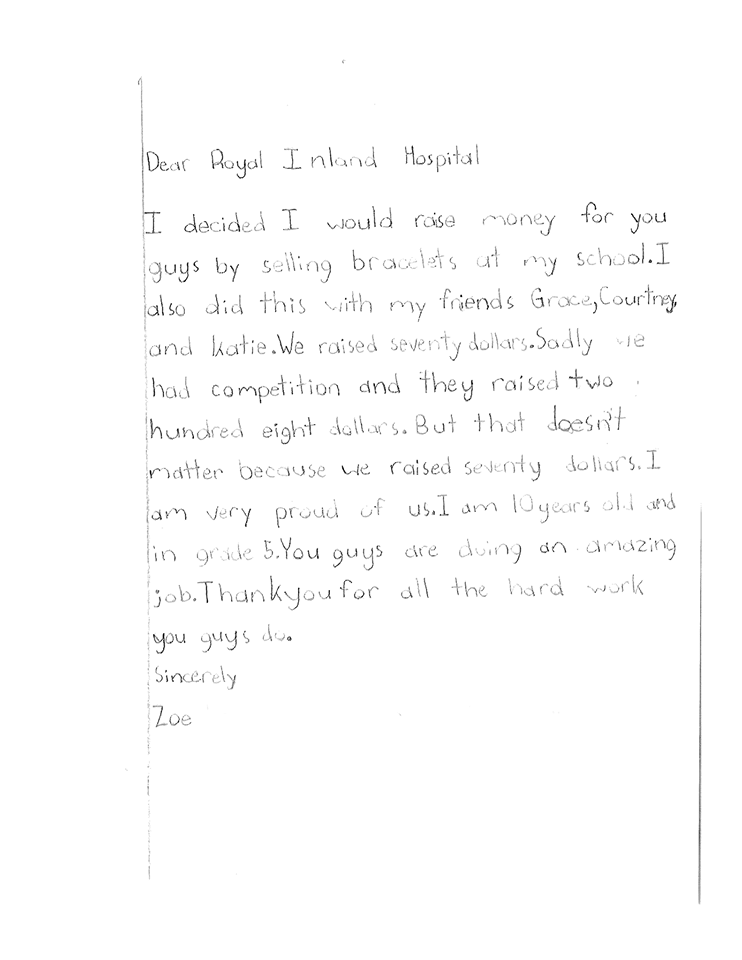 Dear Royal Inland Hospital
I decided I would raise money for you
guys by selling bracelets at my school.I
also did this with my friends Grace,Courtney,
and Katie.We raised seventy dollars.Sadly we
had competition and they raised two
hundred eight dollars.But that doesn't
matter because we raised seventy dollars.I
am very proud of us.I am 10 years old and
in grade 5.You guys are doing an amazing
job.Thankyou for all the hard work
you guys do.
Sincerely
Zoe